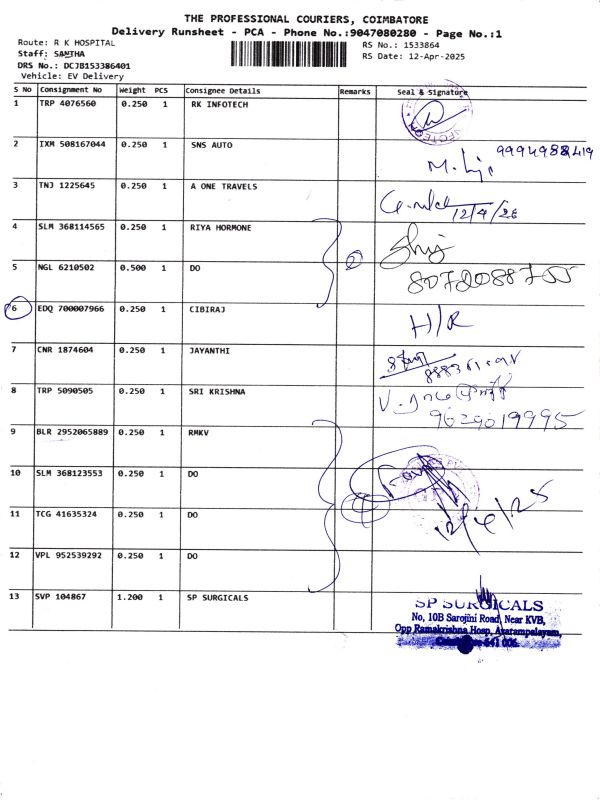 THE PROFESSIONAL COURIERS, COIMBATORE
Delivery Runsheet - PCA - Phone No.:9047080280 - Page No.:1
Route: R K HOSPITAL
RS No.: 1533864
Staff: SANTHA
RS Date: 12-Apr-2025
DRS No.: DCJB153386401
Vehicle: EV Delivery
S No Consignment No Weight PCS Consignee Details Remarks Seal & Signature
1 TRP 4076560 0.250 1 RK INFOTECH
2 IXM 508167044 0.250 1 SNS AUTO
9994988419
3 TNJ 1225645 0.250 1 A ONE TRAVELS
12/4/25
4 SLM 368114565 0.250 1 RIYA HORMONE
5 NGL 6210502 0.500 1 DO
6 EDQ 700007966 0.250 1 CIBIRAJ H/R
7 CNR 1874604 0.250 1 JAYANTHI
8 TRP 5090505 0.250 1 SRI KRISHNA
9629019995
9 BLR 2952065889 0.250 1 RMKV
10 SLM 368123553 0.250 1 DO
11 TCG 41635324 0.250 1 DO
12/4/25
12 VPL 952539292 0.250 1 DO
13 SVP 104867 1.200 1 SP SURGICALS
SP SURGICALS
No, 10B Sarojini Road, Near KVB,
Opp Ramakrishna Hosp, Avarampalayam,
641 006.